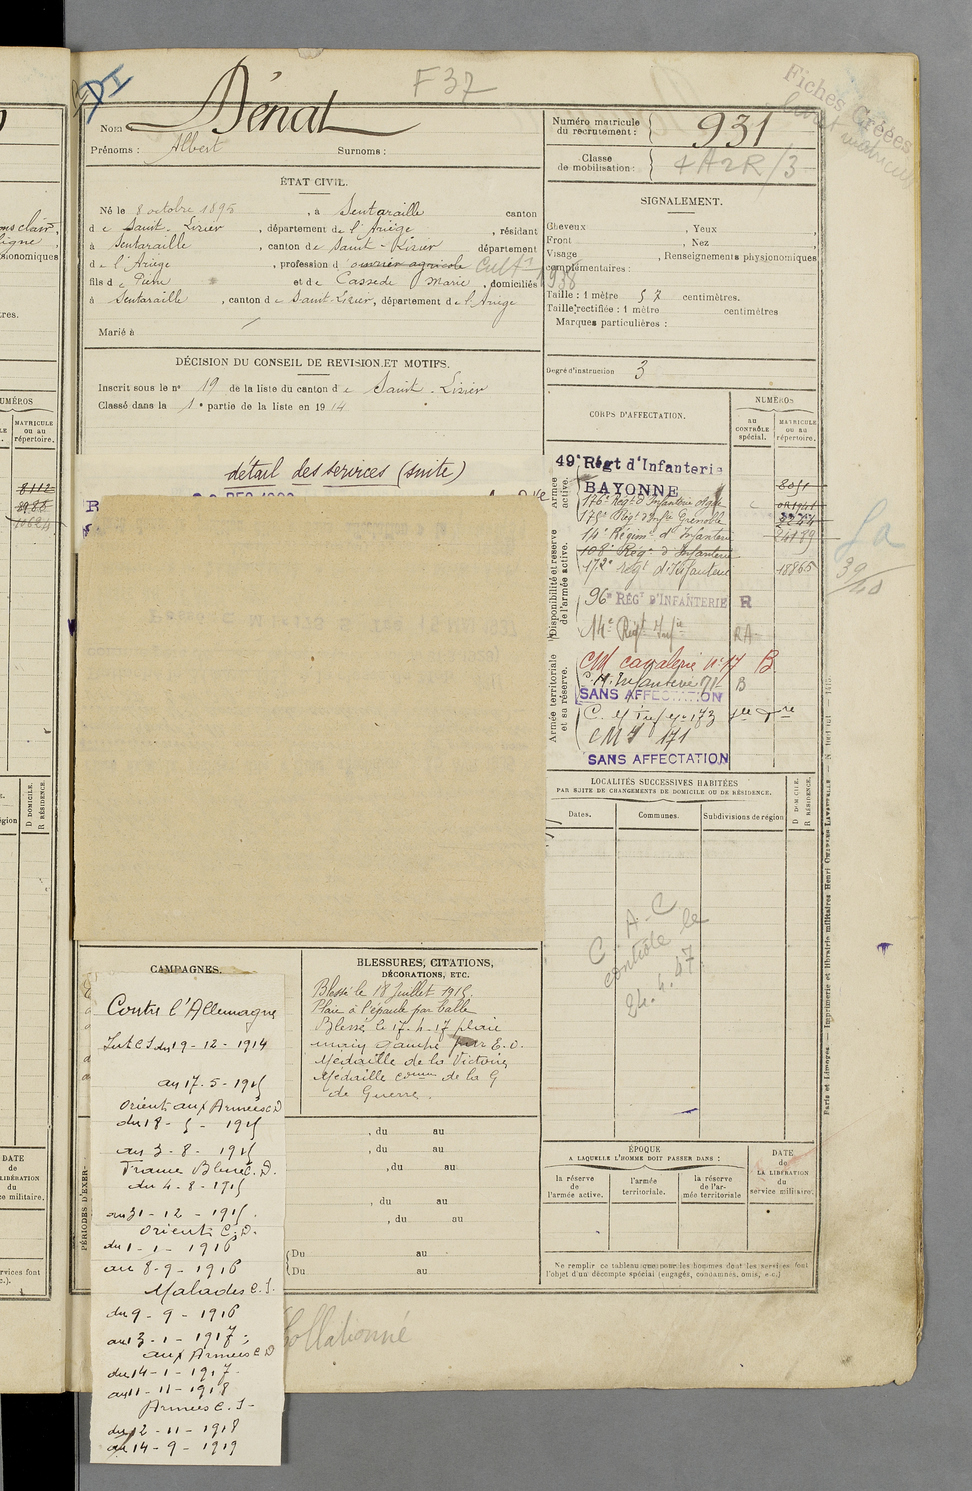 F 37
Fiches Créées
livret matricule
Nom : Dénat
Prénoms : Albert Surnoms :
Numéro matricule
du recrutement : 931
Classe
de mobilisation :
ÉTAT CIVIL.
Né le 8 octobre 1895, à Sentaraille canton
de Saint-Lizier, département de l'Ariège, résidant
à Sentaraille, canton de Saint-Lizier département
de l'Ariège, profession d'ouvrier agricole Cultr
fils de Pierre et de Cassede Marie, domiciliés
à Sentaraille, canton de Saint-Lizier, département de l'Ariège
Marié à
SIGNALEMENT.
Cheveux , Yeux ,
Front , Nez ,
Visage , Renseignements physionomiques
complémentaires :
Taille : 1 mètre 57 centimètres.
Taille rectifiée : 1 mètre centimètres
Marques particulières :
Degré d'instruction 3
DÉCISION DU CONSEIL DE REVISION ET MOTIFS.
Inscrit sous le n° 19 de la liste du canton de Saint-Lizier
Classé dans la 1e partie de la liste en 1914
détail des services (suite)
CORPS D'AFFECTATION.
NUMÉROS
au
CONTRÔLE
spécial.
MATRICULE
ou au
répertoire.
Armée
active.
Disponibilité et réserve
de l'armée active.
Armée territoriale
et sa réserve.
49e Régt d'Infanterie
BAYONNE
176e Régt d'Infanterie
175e Régt d'Infie Grenoble
14e Régim. d'Infanterie 24189
108e Rég. d'Infanterie
172e régt d'Infanterie 18865
96e RÉGT D'INFANTERIE R
14e Régt d'Infie RA
CM cavalerie n° 17 B
C.M. Infanterie 71 B
SANS AFFECTATION
CMI 171
SANS AFFECTATION
39/40
LOCALITÉS SUCCESSIVES HABITÉES
PAR SUITE DE CHANGEMENTS DE DOMICILE OU DE RÉSIDENCE.
Dates.
Communes.
Subdivisions de région
D DOMICILE.
R RÉSIDENCE.
C.A.C
contrôle le
24.4.47
CAMPAGNES.
Contre l'Allemagne
Int C S du 19-12-1914
au 17-5-1915
Orient aux Armées C D
du 18-5-1915
au 3-8-1915
France Blessé C.D.
du 4-8-1915
au 31-12-1915.
Orient C.D.
du 1-1-1916
au 8-9-1916
Malades C.S.
du 9-9-1916
au 13-1-1917
aux Armées C D
du 14-1-1917
au 11-11-1918
Armées C.S-
du 12-11-1918
au 14-9-1919
BLESSURES, CITATIONS,
DÉCORATIONS, ETC.
Blessé le 18 Juillet 1915.
Plaie à l'épaule par balle
Blessé le 17-4-17 plaie
main gauche par E.O.
Médaille de la Victoire
Médaille comm de la G
de Guerre.
PÉRIODES D'EXER-
, du au
, du au
, du au
, du au
, du au
Du au
Du au
ÉPOQUE
A LAQUELLE L'HOMME DOIT PASSER DANS :
la réserve
de
l'armée active.
l'armée
territoriale.
la réserve
de l'ar-
mée territoriale
DATE
de
LA LIBÉRATION
du
service militaire.
Ne remplir ce tableau que pour les hommes dont les services font
l'objet d'un décompte spécial (engagés, condamnés, omis, etc.)
Collationné
Paris et Limoges. — Imprimerie et librairie militaires Henri CHARLES-LAVAUZELLE.
NUMÉROS
MATRICULE
ou au
répertoire.
8112
D DOMICILE.
R RÉSIDENCE.
DATE
de
LIBÉRATION
du
ce militaire.